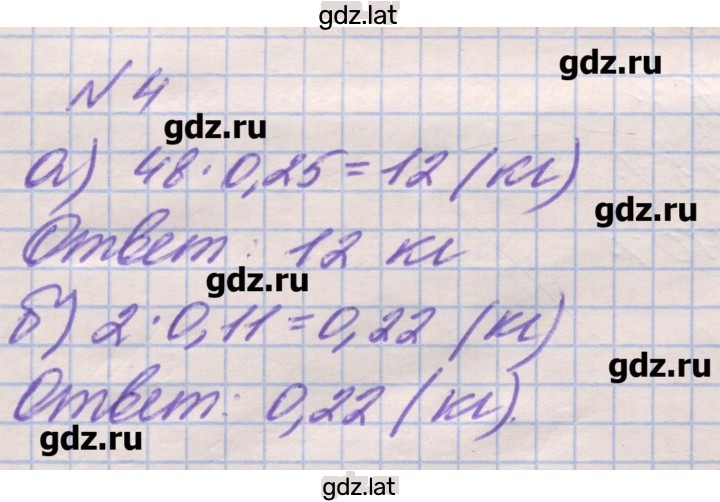 gdz.lat
gdz.ru
№ 4
gdz.ru
а) 48 · 0,25 = 12 (кг)
gdz.ru
Ответ: 12 кг
gdz.ru
б) 2 · 0,11 = 0,22 (кг)
gdz.ru
Ответ: 0,22 (кг).
gdz.ru
gdz.lat